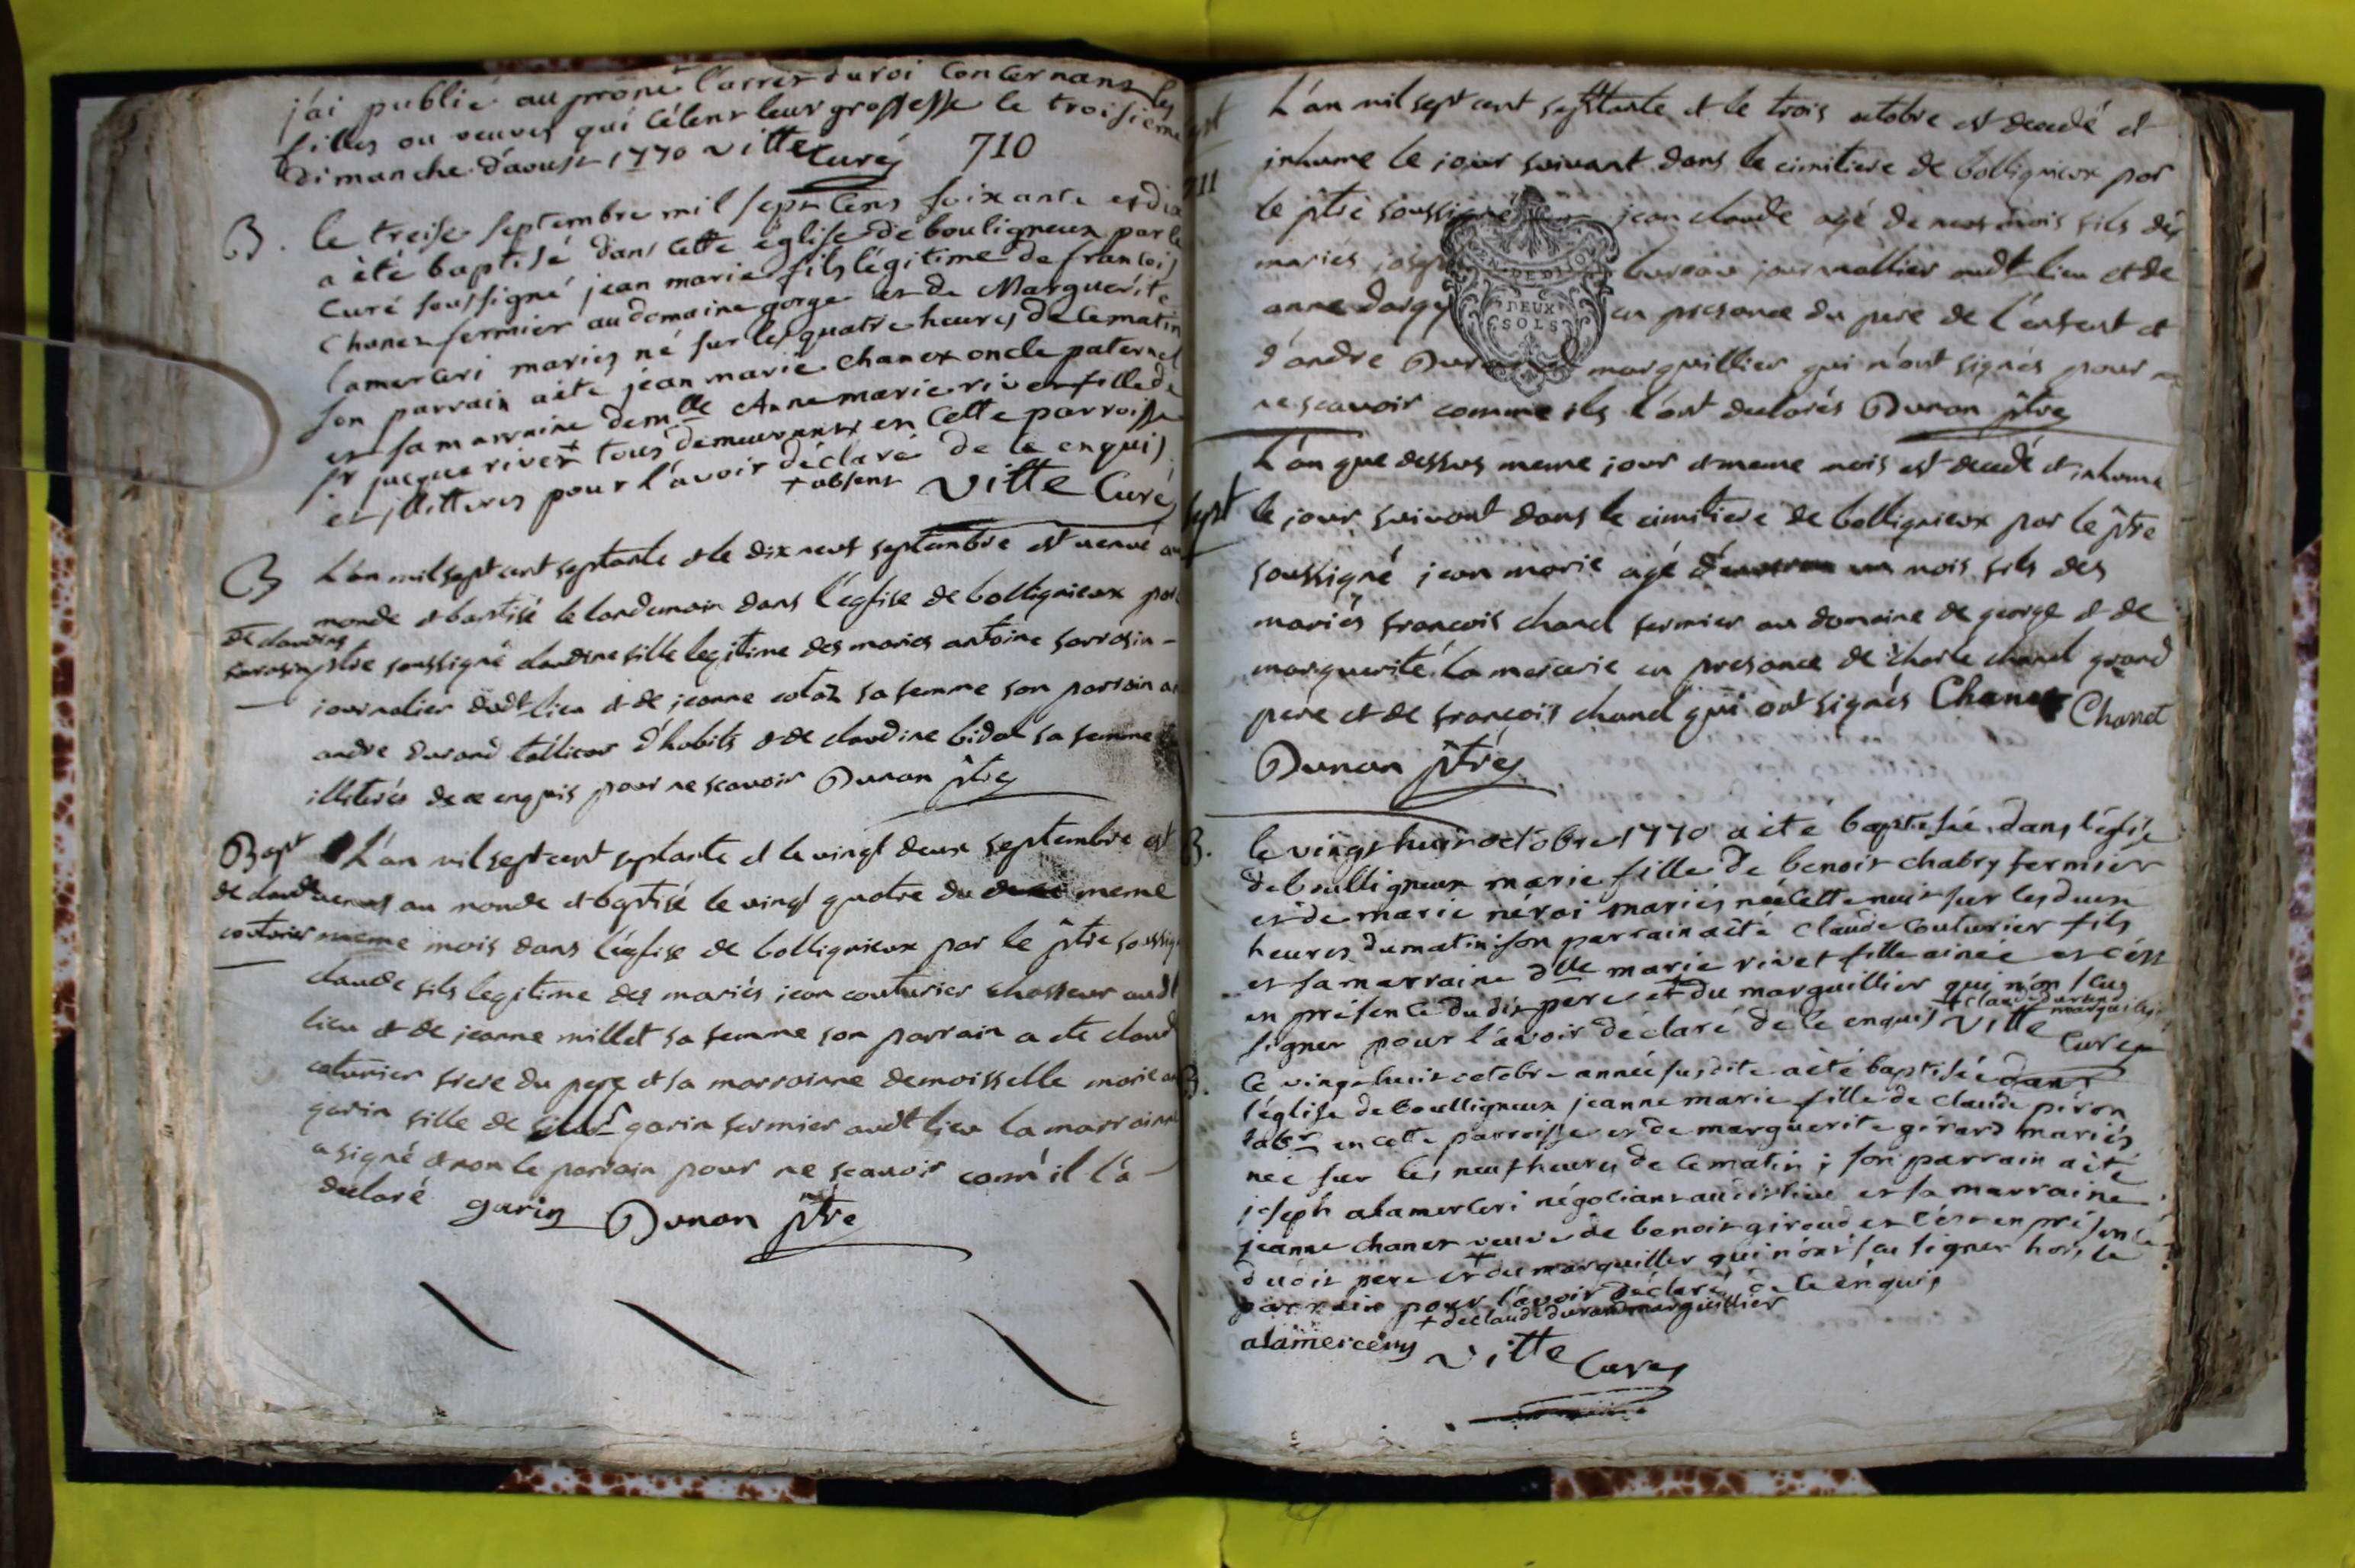 j'ai publié au prone l'arret du roi concernant les
filles ou veuves qui célent leur grossesse le troisieme
dimanche d'aoust 1770 vitte curé
710
B. le treise septembre mil sept cens soixante et dix
a été baptisé dans cette église de bouligneux par le
curé soussigné jean marie fils légitime de francois
chanet fermier au domaine gorge et de Marguérite
lamerceri mariés né sur les quatre heures de ce matin
son parrain a été jean marie chanet oncle paternel
et sa marraine demlle Anne marie rivet fille de
sr jacque rivet + tous demeurants en cette parroisse
et illitteres pour l'avoir déclaré de ce enquis
+ absent vitte Curé
B L'an mil sept cent septante et le dix neuf septembre est venue au
monde et baptisé le landemain dans l'église de bollignieux par
de claudine
sarrasin ptre soussigné claudine fille legitime des mariés antoine sarrasin -
journalier dudt lieu et de jeanne cotaz sa femme son parrain a
andre durand tallieur d'habits et de claudine bidal sa femme
illiterés de ce enquis pour ne scavoir Dunan ptre
Bapt L'an mil sept cent septante et le vingt deux septembre est
de claude venus au monde et baptisé le vingt quatre du meme
couturier meme mois dans l'église de bollignieux par le ptre soussigné
claude fils legitime des mariés jean couturier chasseur audt
lieu et de jeanne millet sa femme son parrain a ete claude
coturier frere du pere et sa marrainne demoisselle marie
garin fille de sieur garin fermier audt lieu la marrainne
a signé et non le parrain pour ne scavoir com'il l'a -
declaré garin Dunan ptre
711
L'an mil sept cent septtante et le trois octobre est decedé et
inhume le jour suivant dans le cimitiere de bollignieux par
le ptre soussigné jean claude agé de neuf mois fils des
mariés joseph bureau journallier audt lieu et de
anne dargy en presance du pere de l'enfent et
d'andre Durand marguillier qui n'ont signés pour
ne scavoir comme ils l'ont declarés Dunan ptre
GEN. DE DIJON
DEUX
SOLS
L'an que dessus meme jour et meme mois est decedé et inhume
sept le jour suivant dans le cimitiere de bollignieux par le ptre
soussigné jean marie agé d'un mois fils des
mariés francois chanel fermier au domaine de george et de
marguerité la mercerie en presance de charle chanel grand
pere et de francois chanel qui ont signés Chanet Chanet
Dunan ptre
B. le vingt huit octobre 1770 a été baptisée dans l'église
de boulligneux marie fille de benoit chabry fermier
et de marie néroi mariés née cette nuit sur les deux
heures du matin son parrain a été claude couturier fils
et sa marraine dlle marie rivet fille ainée et c'est
en présence dudit pere et + du marguillier qui n'on sceu
+ claude durand marguillier
signer pour l'avoir déclaré de ce enquis vitte
curé
B. le vingt huit octobre année susdite a été baptisée dans
l'église de boulligneux jeanne marie fille de claude piron
labr en cette parroisse et de marguerite girard mariés
née sur les neuf heures de ce matin ; son parrain a été
joseph alamerceri négotiant audit lieu et sa marraine
jeanne chanet veuve de benoit giroud et c'est en présence
dudit pere et + du marguillier qui n'ont sceu signer hors le
parrain pour l'avoir déclaré de ce enquis
+ de claude durand marguillier
alamercery vitte
curé